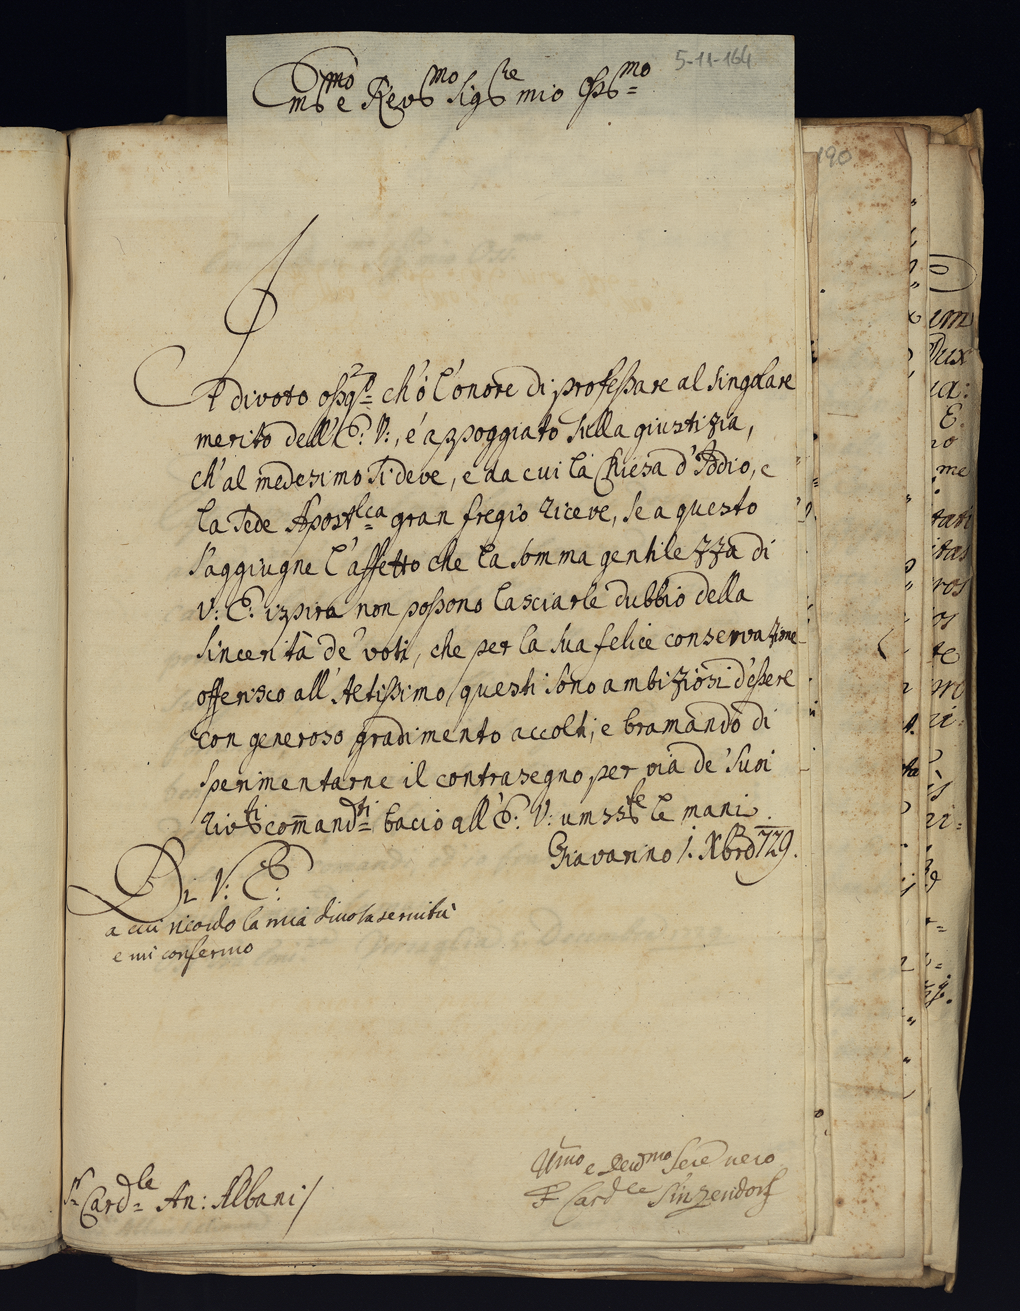 Em.mo e Rev.mo Sig.re mio Oss.mo
5-11-164
190
Il divoto ossq.o ch'ò l'onore di professare al singolare
merito dell'E: V:, è appoggiato sulla giustizia,
ch'al medesimo si deve, e da cui la Chiesa d'Iddio, e
la Sede Apost.lca gran fregio riceve, se a questo
s'aggiugne l'affetto che la somma gentilezza di
V: E: ispira non possono lasciarle dubbio della
sincerità de' voti, che per la sua felice conservazione
offerisco all'Altissimo, questi sono ambiziosi d'essere
con generoso gradimento accolti; e bramando di
sperimentarne il contrasegno per via de' suoi
riv.ti comand.ti bacio all'E: V: umss.te le mani.
Giavarino 1. Xbre 729.
Di V: E:
a cui ricordo la mia divota servitù
e mi confermo
S.r Card.le An: Albani/
U.mo e Dev.mo Ser
Card.le Sinzendorf